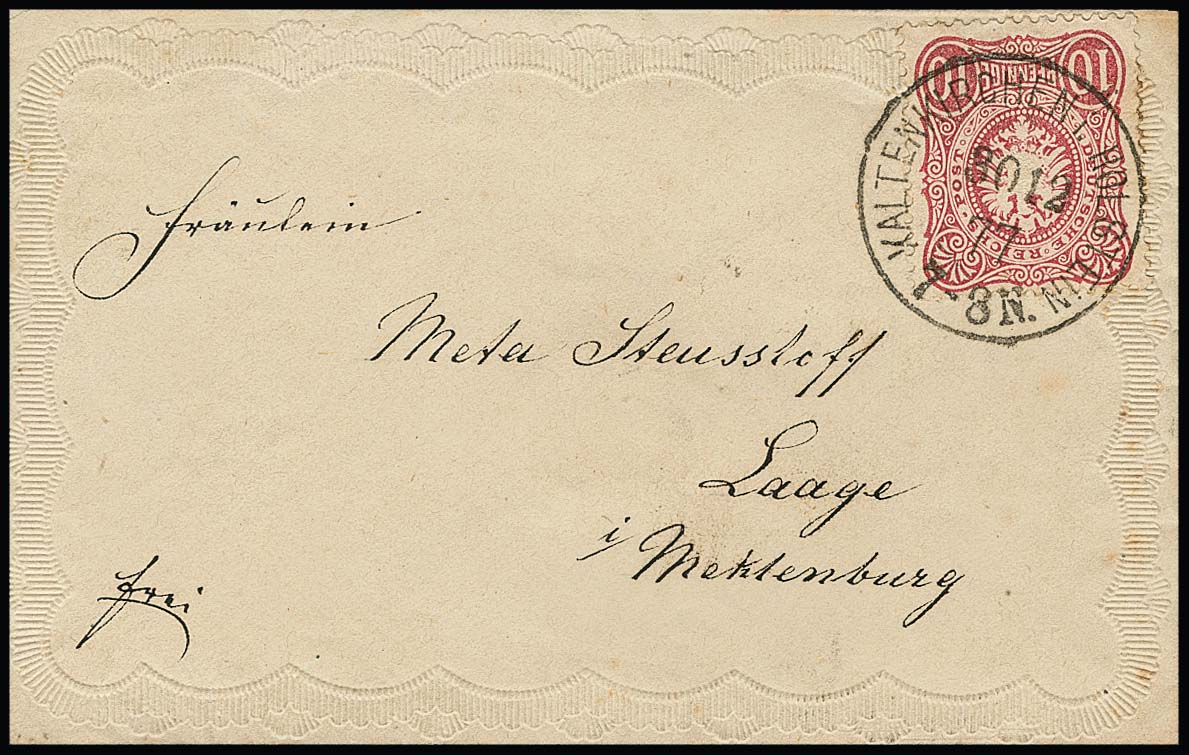 10 PFENNIGE 10
DEUTSCHE · REICHS - POST ·
KALTENKIRCHEN I. HOLSTEIN
30 12
77
7-8 N.
Fräulein
Meta Steussloff
Laage
i/Meklenburg
frei